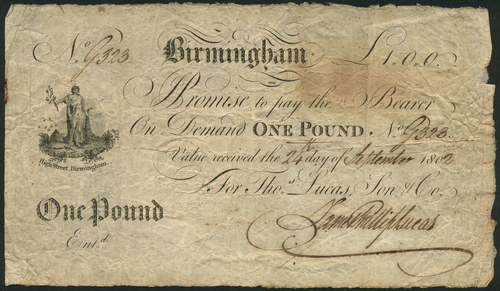 No. G323 Birmingham £1.0.0.
I Promise to pay the Bearer
On Demand ONE POUND. No. G323
Value received the 24th day of September 1802
For Thos. Lucas, Son & Co.
High Street, Birmingham.
One Pound
Entd.
James Phillip Lucas